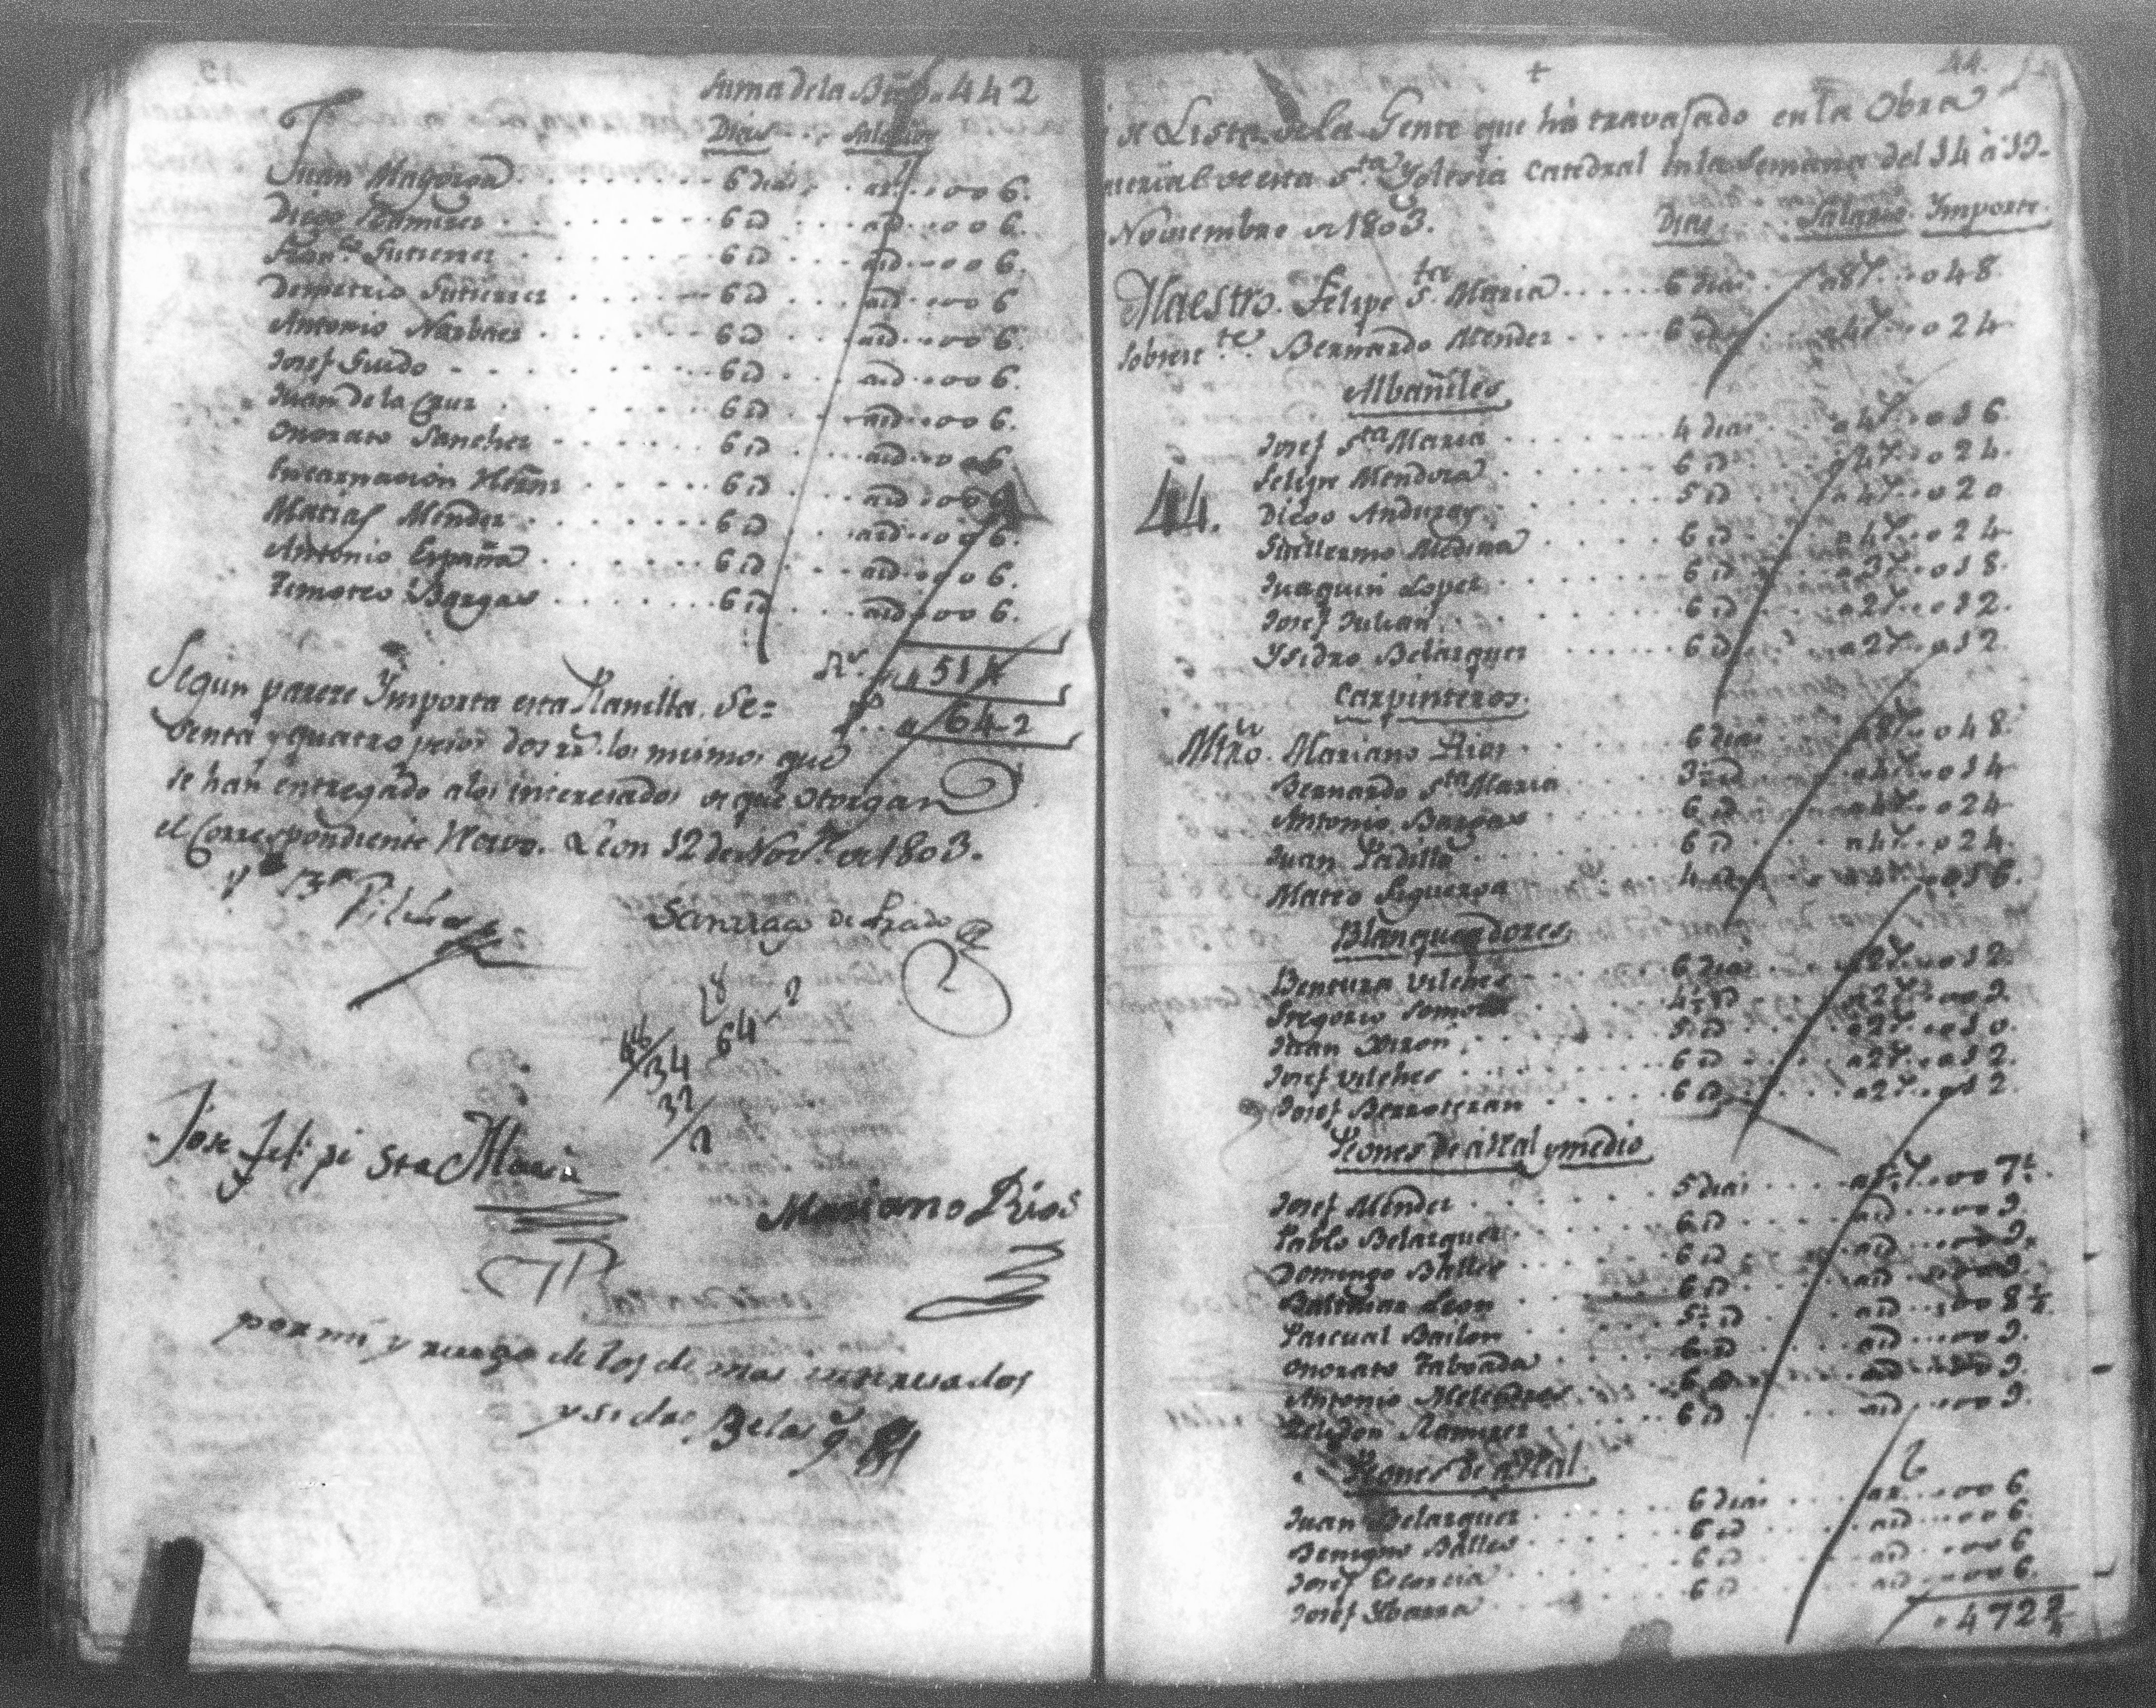 Suma de la Bta 442
Dias Salarios
Juan Mayorga 6 dias a r. 006.
Diego Ramirez 6 id a id 006.
Franco Gutierrez 6 id a id 006.
Demetrio Gutierrez 6 id a id 006
Antonio Narbaes 6 id a id 006.
Josef Guido 6 id a id 006.
Juan de la Cruz 6 id a id 006.
Onorato Sanchez 6 id a id 006
Encarnacion Hernz 6 id a id 006
Matias Mendez 6 id a id 006.
Antonio España 6 id a id 006.
Timoteo Bargas 6 id a id 006.
Rs. 514
Segun parece Ymporta esta Planilla, Se= ps. 64-2
senta y quatro pesos dos rrs. los mismos que
se han entregado a los interesados de que otorgan
el Correspondiente Recivo. Leon 12 de Nove. de 1803.
Vo Bo Vilchez
Santiago de Prado
8
64-2
34
32
2
Jose Felipe Sta Maria
Mariano Rios
por mi y ruego de los demas interesados
ysidro Belasqz
44.
+
Lista de la Gente que há travajado en la Obra
material de esta Sta. Yglesia Catedral en la Semana del 14 à 19.
Noviembre de 1803. Dias Salario Ymporte.
Maestro. Felipe Sta. Maria 6 dias a 8 r. 048
Sobreste. Bernardo Mendez 6 id a 4 r. 024
Albañiles
Josef Sta Maria 4 dias a 4 r. 016
Felipe Mendoza 6 id a 4 r. 024.
44. Diego Anduray 5 id a 4 r. 020
Guillermo Medina 6 id a 4 r. 024
Juaquin Lopez 6 id a 3 r. 018.
Josef Julian 6 id a 2 r. 012.
Ysidro Belazquez 6 id a 2 r. 012.
Carpinteros.
Mtro. Mariano Rios 6 dias a 8 r. 048.
Bernardo Sta Maria 3½ id a 4 r. 014
Antonio Bargas 6 id a 4 r. 024
Juan Padilla 6 id a 4 r. 024.
Mateo Sequeyra 4 id a 4 r. 016.
Blanqueadores
Bentura Vilches 6 dias a 2 r. 012.
Gregorio Somoza 4½ id a 2 r. 009.
Juan Xiron 5 id a 2 r. 010.
Josef Vilches 6 id a 2 r. 012.
Josef Berroteran 6 id a 2 r. 012.
Peones de a Real y medio
Josef Mendez 5 dias a 1½ r. 007½.
Pablo Belazquez 6 id a id 009.
Domingo Balles 6 id a id 009.
Baltasar Leon 6 id a id 009
Pascual Bailon 5½ id a id 008½.
Onorato Taboada 6 id a id 009.
Antonio Melendres 6 id a id 009.
Zeledon Ramirez 6 id a id 009.
Peones de a Real.
Juan Belazquez 6 dias a r. 006
Benigno Balles 6 id a id 006.
Josef Escorcia 6 id a id 006
Josef Ybarra 6 id a id 006.
472½